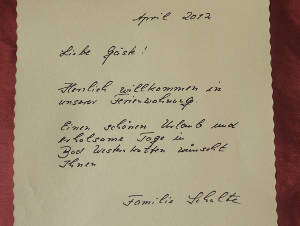 April 2012
Liebe Gäste!
Herzlich willkommen in
unserer Ferienwohnung.
Einen schönen Urlaub und
erholsame Tage in
Bad Westernkotten wünscht
Ihnen
Familie Schulte